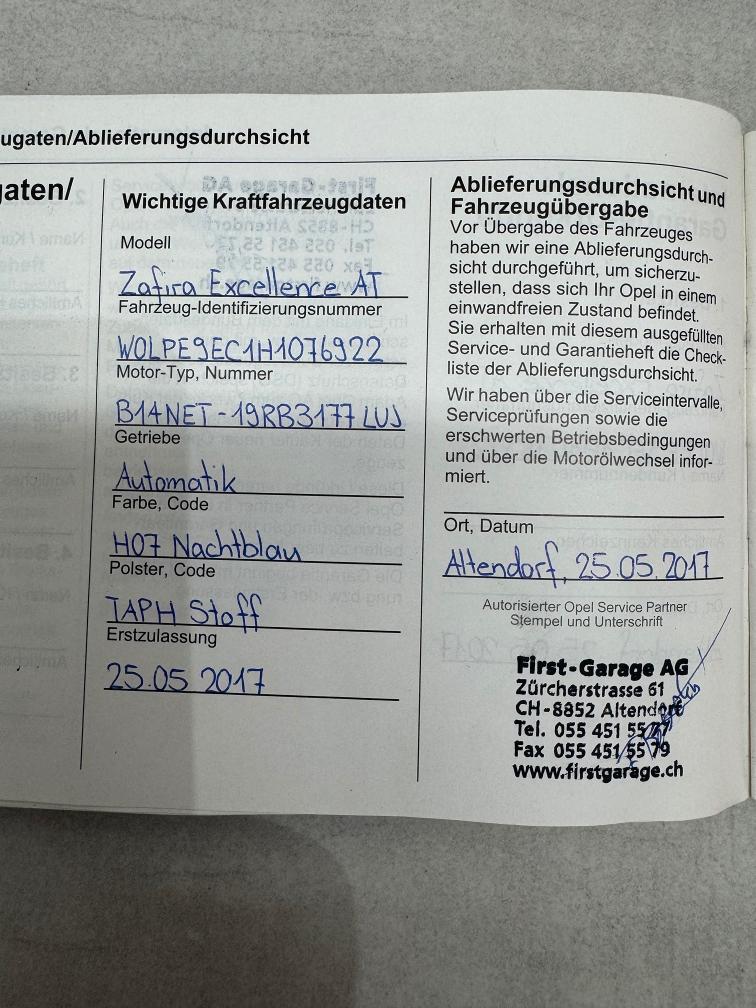 ugaten/Ablieferungsdurchsicht
gaten/
Wichtige Kraftfahrzeugdaten
Modell
Zafira Excellence AT
Fahrzeug-Identifizierungsnummer
WOLPE9EC1H1076922
Motor-Typ, Nummer
B14NET-19RB3177 LUJ
Getriebe
Automatik
Farbe, Code
H07 Nachtblau
Polster, Code
TAPH Stoff
Erstzulassung
25.05 2017
Ablieferungsdurchsicht und
Fahrzeugübergabe
Vor Übergabe des Fahrzeuges
haben wir eine Ablieferungsdurch-
sicht durchgeführt, um sicherzu-
stellen, dass sich Ihr Opel in einem
einwandfreien Zustand befindet.
Sie erhalten mit diesem ausgefüllten
Service- und Garantieheft die Check-
liste der Ablieferungsdurchsicht.
Wir haben über die Serviceintervalle,
Serviceprüfungen sowie die
erschwerten Betriebsbedingungen
und über die Motorölwechsel infor-
miert.
Ort, Datum
Altendorf, 25.05.2017
Autorisierter Opel Service Partner
Stempel und Unterschrift
First-Garage AG
Zürcherstrasse 61
CH-8852 Altendorf
Tel. 055 451 55 77
Fax 055 451 55 79
www.firstgarage.ch